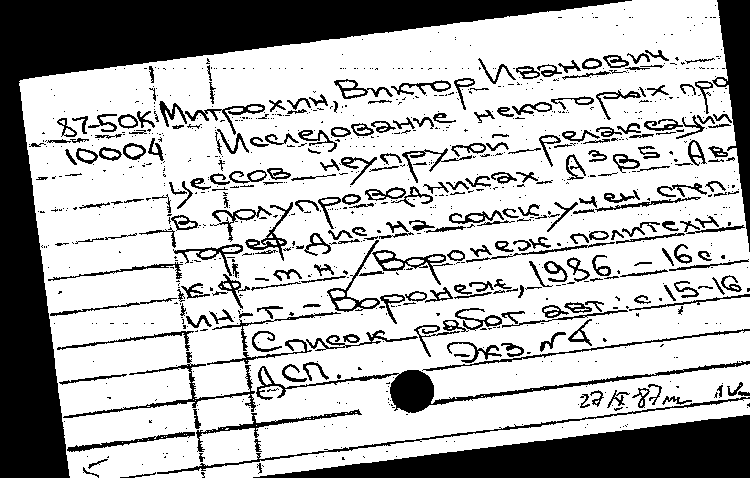 87-50К Митрохин, Виктор Иванович.
10004 Исследование некоторых про
цессов неупругой релаксации
в полупроводниках А³В⁵: Ав
тореф. дис. на соиск. учен. степ.
к.ф.-т.н. - Воронеж. политехн.
ин-т. - Воронеж, 1986. - 16с.
Список работ авт.: с. 15-16.
ДСП. Экз. №
27/ 87